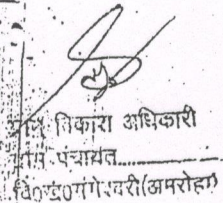 ग्राम विकास अधिकारी
ग्राम पंचायत..................
वि०ख०गंगेश्वरी(अमरोहा)